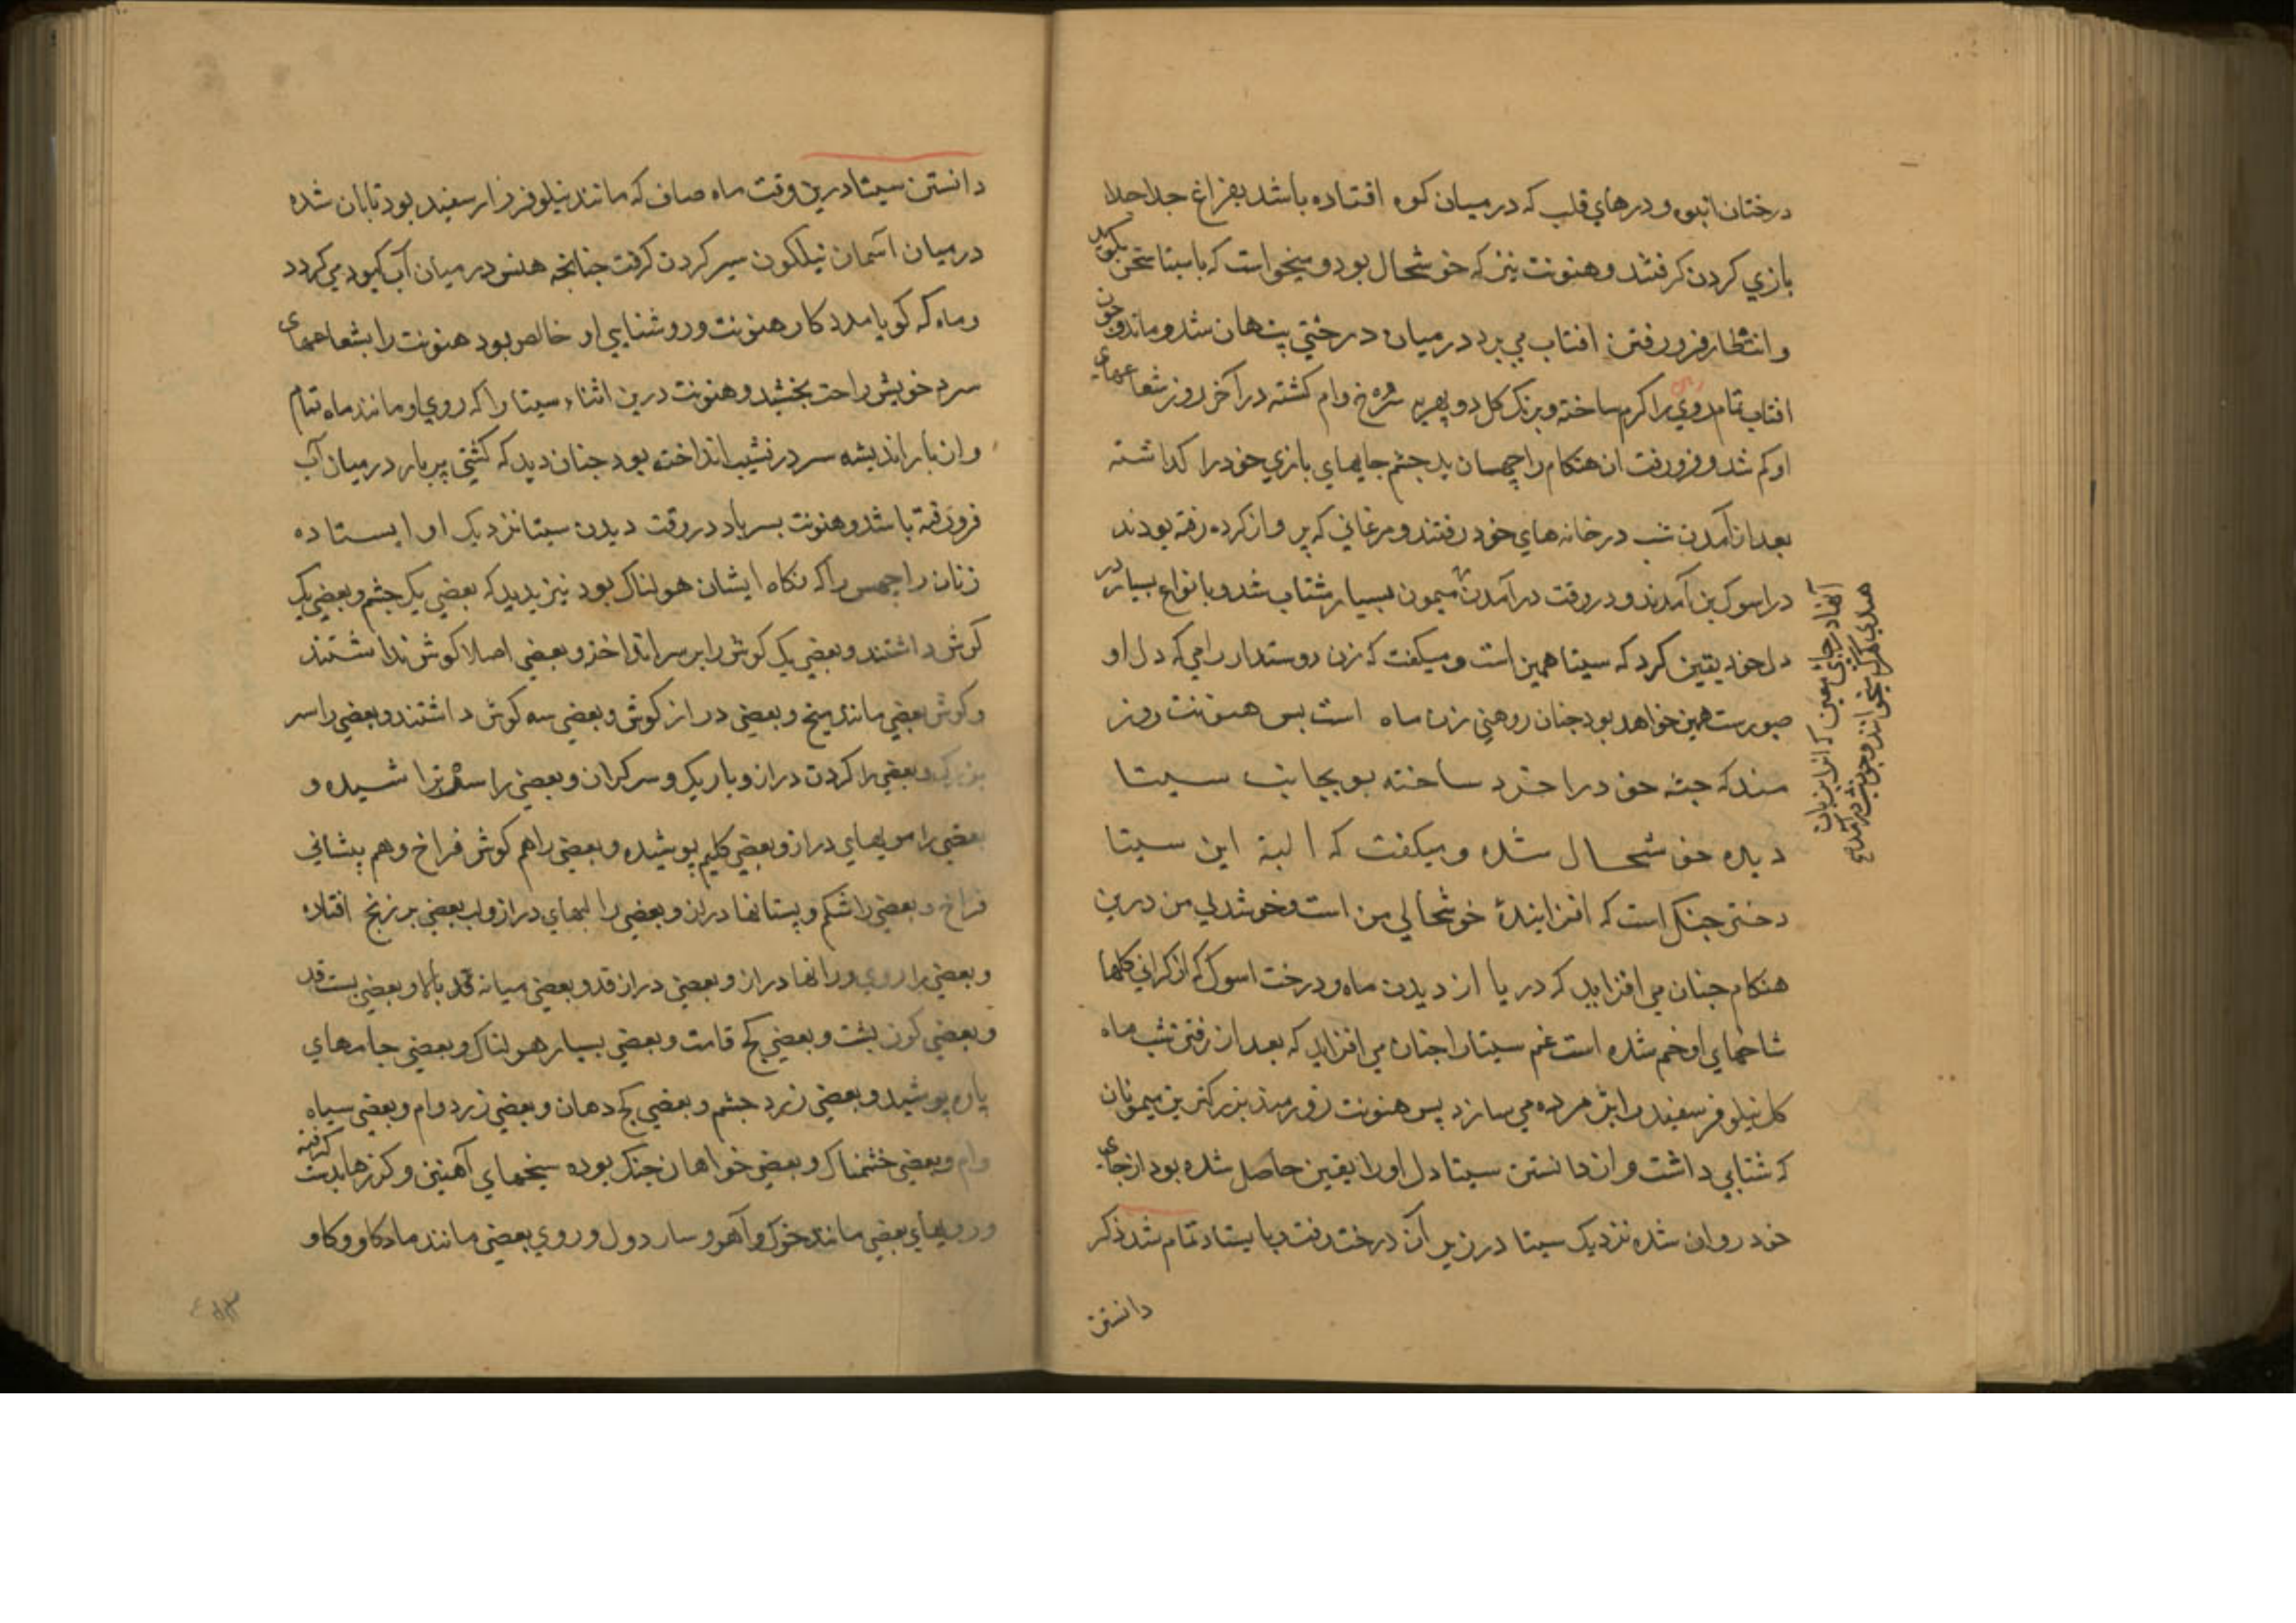 درختان انبوه و درهاي قلب که در میان کوه افتاده باشد بفراغ جدا جدا
بازي کردن گرفتند و هنونت نیز که خوشحال بود و میخواست که با سیتا سخن بگوید
و انتظار فرو رفتن افتاب می برد در میان درختي پنهان شد و ماند و چون
افتاب تمام روي را کرم ساخته و برنک کل دوپهریه سرخ وام کشته در آخر روز شعاعهاي
او کم شد و فرو رفت ان هنکام راچهسان بد چشم جایهاي بازي خود را کذاشته
بعد از آمدن شب در خانه هاي خود رفتند و مرغاني که پرواز کرده رفته بودند
در اسوک بن آمدند و در وقت در آمدن میمون بسیار شتاب شد و با نواع بسیار در
دل خود یقین کرد که سیتا همین است و میکفت که زن دوستدار رامي که دل او
صورت همین خواهد بود چنان روهني زن ماه است پس هنونت روز
مند که جثه خود را خرد ساخته بود بجانب سیتا
دیده خوشحال شده و میکفت که البته این سیتا
دختر جنک است که افزاینده خوشحالي من است و خوشدلي من درین
هنکام چنان مي افزاید که دریا از دیدن ماه و درخت اسوک که از کراني کلها
شاخهاي او خم شده است غم سیتا را چنان مي افزاید که بعد از رفتن شب ماه
کل نیلوفر سفید را پژمرده مي سازد پس هنونت زورمند بزرکترین میمونان
که شتابي داشت و از دانستن سیتا دل او را یقین حاصل شده بود از جاي
خود روان شده نزدیک سیتا در زیر آن درخت رفت و بایستاد تمام شد ذکر
دانستن
دانستن سیتا درین وقت ماه صاف که مانند نیلوفر زار سفید بود تابان شده
درمیان آسمان نیلکون سیر کردن کرفت چنانچه هنس در میان آب کبود مي کردد
و ماه که کویا مدد کار هنونت و روشنایي او خالص بود هنونت را بشعاعهاي
سرد خویش راحت بخشید و هنونت درین اثناء سیتا را که روي او مانند ماه تمام
و از بار اندیشه سر در نشیب انداخته بود چنان دید که کشتي پر بار در میان آب
فرو رفته باشد و هنونت پسر باد در وقت دیدن سیتا نزدیک او ایستاده
زنان راچهس را که نکاه ایشان هولناک بود نیز بدید که بعضي یک چشم و بعضي یک
کوش داشتند و بعضي یک کوش را بر سر انداخته و بعضي اصلا کوش نداشتند
و کوش بعضي مانند میخ و بعضي دراز کوش و بعضي سه کوش داشتند و بعضي را سر
بزرک و بعضي را کردن دراز و باریک و سر کران و بعضي را سر تراشیده و
بعضي را مویهاي دراز و بعضي کلیم پوشیده و بعضي را هم کوش فراخ و هم پیشاني
فراخ و بعضي را شکم و پستانها دراز و بعضي را لبهاي دراز و لب بعضي بر زنخ افتاده
و بعضي را روي و رانها دراز و بعضي دراز قد و بعضي میانه قد بالا و بعضي پست قد
و بعضي کوز پشت و بعضي کج قامت و بعضي بسیار هولناک و بعضي جامهاي
پاره پوشید و بعضي زرد چشم و بعضي کج دهان و بعضي زرد وام و بعضي سیاه
وام و بعضي خشمناک و بعضي خواهان جنک بوده سیخهاي آهنین و کرزها بدست کرفته
و رویهاي بعضي مانند خوک و آهو و ساردول و روي بعضي مانند ماده کاو و کاو